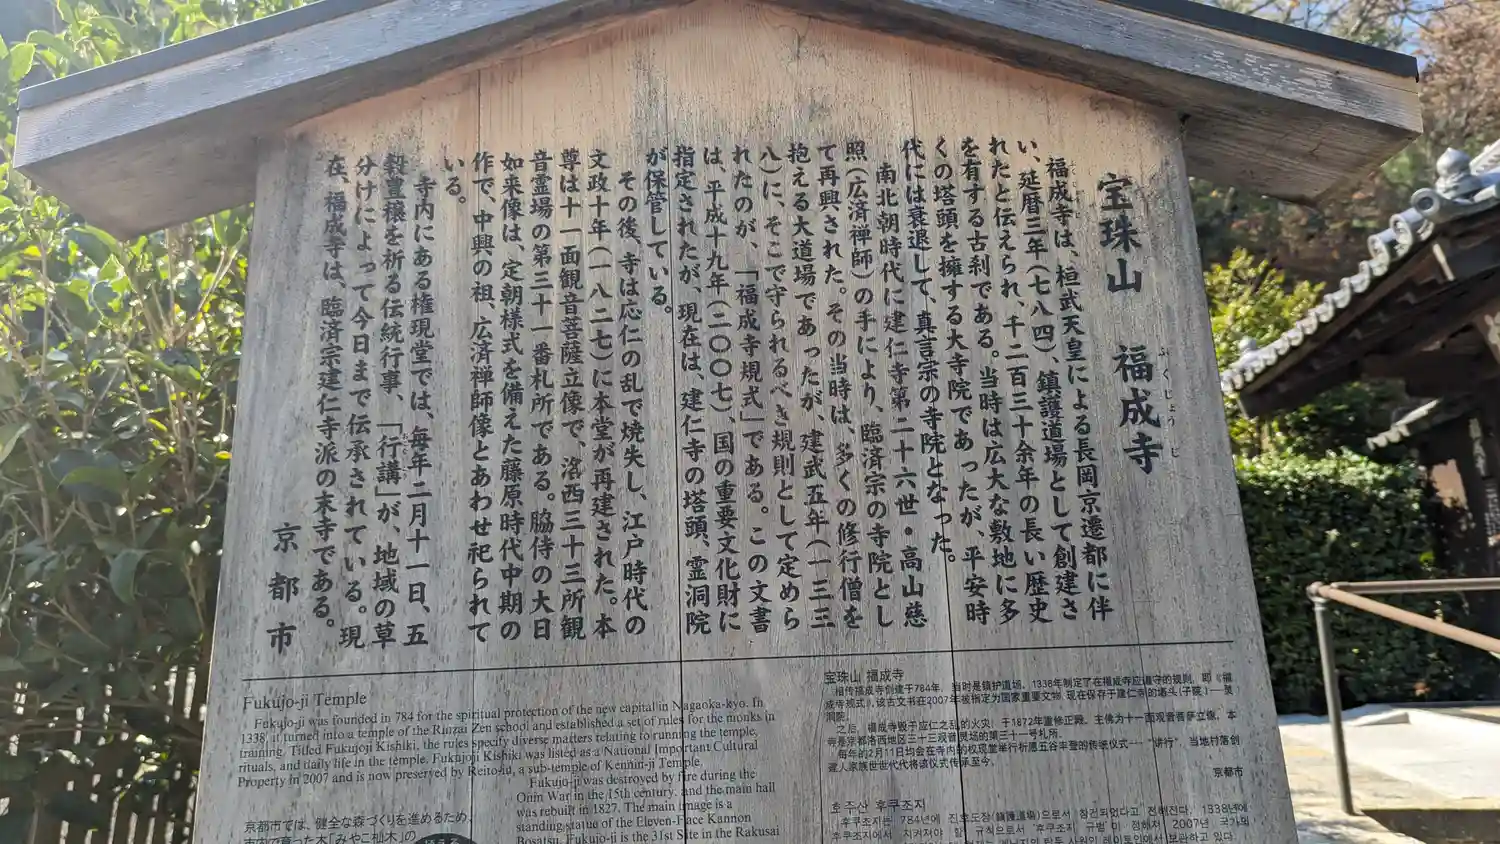 宝珠山 福成寺
ふくじょうじ
福成寺は、桓武天皇による長岡京遷都に伴
い、延暦三年(七八四)、鎮護道場として創建さ
れたと伝えられ、千二百三十余年の長い歴史
を有する古刹である。当時は広大な敷地に多
くの塔頭を擁する大寺院であったが、平安時
代には衰退して、真言宗の寺院となった。
南北朝時代に建仁寺第二十六世・高山慈
照(広済禅師)の手により、臨済宗の寺院とし
て再興された。その当時は、多くの修行僧を
抱える大道場であったが、建武五年(一三三
八)に、そこで守られるべき規則として定めら
れたのが、「福成寺規式」である。この文書
は、平成十九年(二〇〇七)、国の重要文化財に
指定されたが、現在は、建仁寺の塔頭、霊洞院
が保管している。
その後、寺は応仁の乱で焼失し、江戸時代の
文政十年(一八二七)に本堂が再建された。本
尊は十一面観音菩薩立像で、洛西三十三所観
音霊場の第三十一番札所である。脇侍の大日
如来像は、定朝様式を備えた藤原時代中期の
作で、中興の祖、広済禅師像とあわせ祀られて
いる。
寺内にある権現堂では、毎年二月十一日、五
穀豊穣を祈る伝統行事、「行講」が、地域の草
分けによって今日まで伝承されている。現
在、福成寺は、臨済宗建仁寺派の末寺である。
京都市
Fukujo-ji Temple
Fukujo-ji was founded in 784 for the spiritual protection of the new capital in Nagaoka-kyo. In
1338, it turned into a temple of the Rinzai Zen school and established a set of rules for the monks in
training. Titled Fukujoji Kishiki, the rules specify diverse matters relating to running the temple,
rituals, and daily life in the temple. Fukujoji Kishiki was listed as a National Important Cultural
Property in 2007 and is now preserved by Reito-in, a sub-temple of Kennin-ji Temple.
Fukujo-ji was destroyed by fire during the
Onin War in the 15th century, and the main hall
was rebuilt in 1827. The main image is a
standing statue of the Eleven-Face Kannon
Bosatsu. Fukujo-ji is the 31st Site in the Rakusai
京都市では、健全な森づくりを進めるため、
市内で育った木「みやこ杣木」の
宝珠山 福成寺
相传福成寺创建于784年，当时是镇护道场。1338年制定了在福成寺应遵守的规则，即《福
成寺规式》。该古文书在2007年被指定为国家重要文物，现在保存于建仁寺的塔头(子院)——灵
洞院。
之后，福成寺毁于应仁之乱的火灾，于1872年重修正殿。主佛为十一面观音菩萨立像，本
寺是京都洛西地区三十三观音灵场的第三十一号札所。
每年的2月11日均会在寺内的权现堂举行祈愿五谷丰登的传统仪式——"讲行"，当地村落创
建人家族世世代代将该仪式传承至今。
京都市
호주산 후쿠조지
후쿠조지는 784년에 진호도장(鎮護道場)으로서 창건되었다고 전해진다. 1338년에